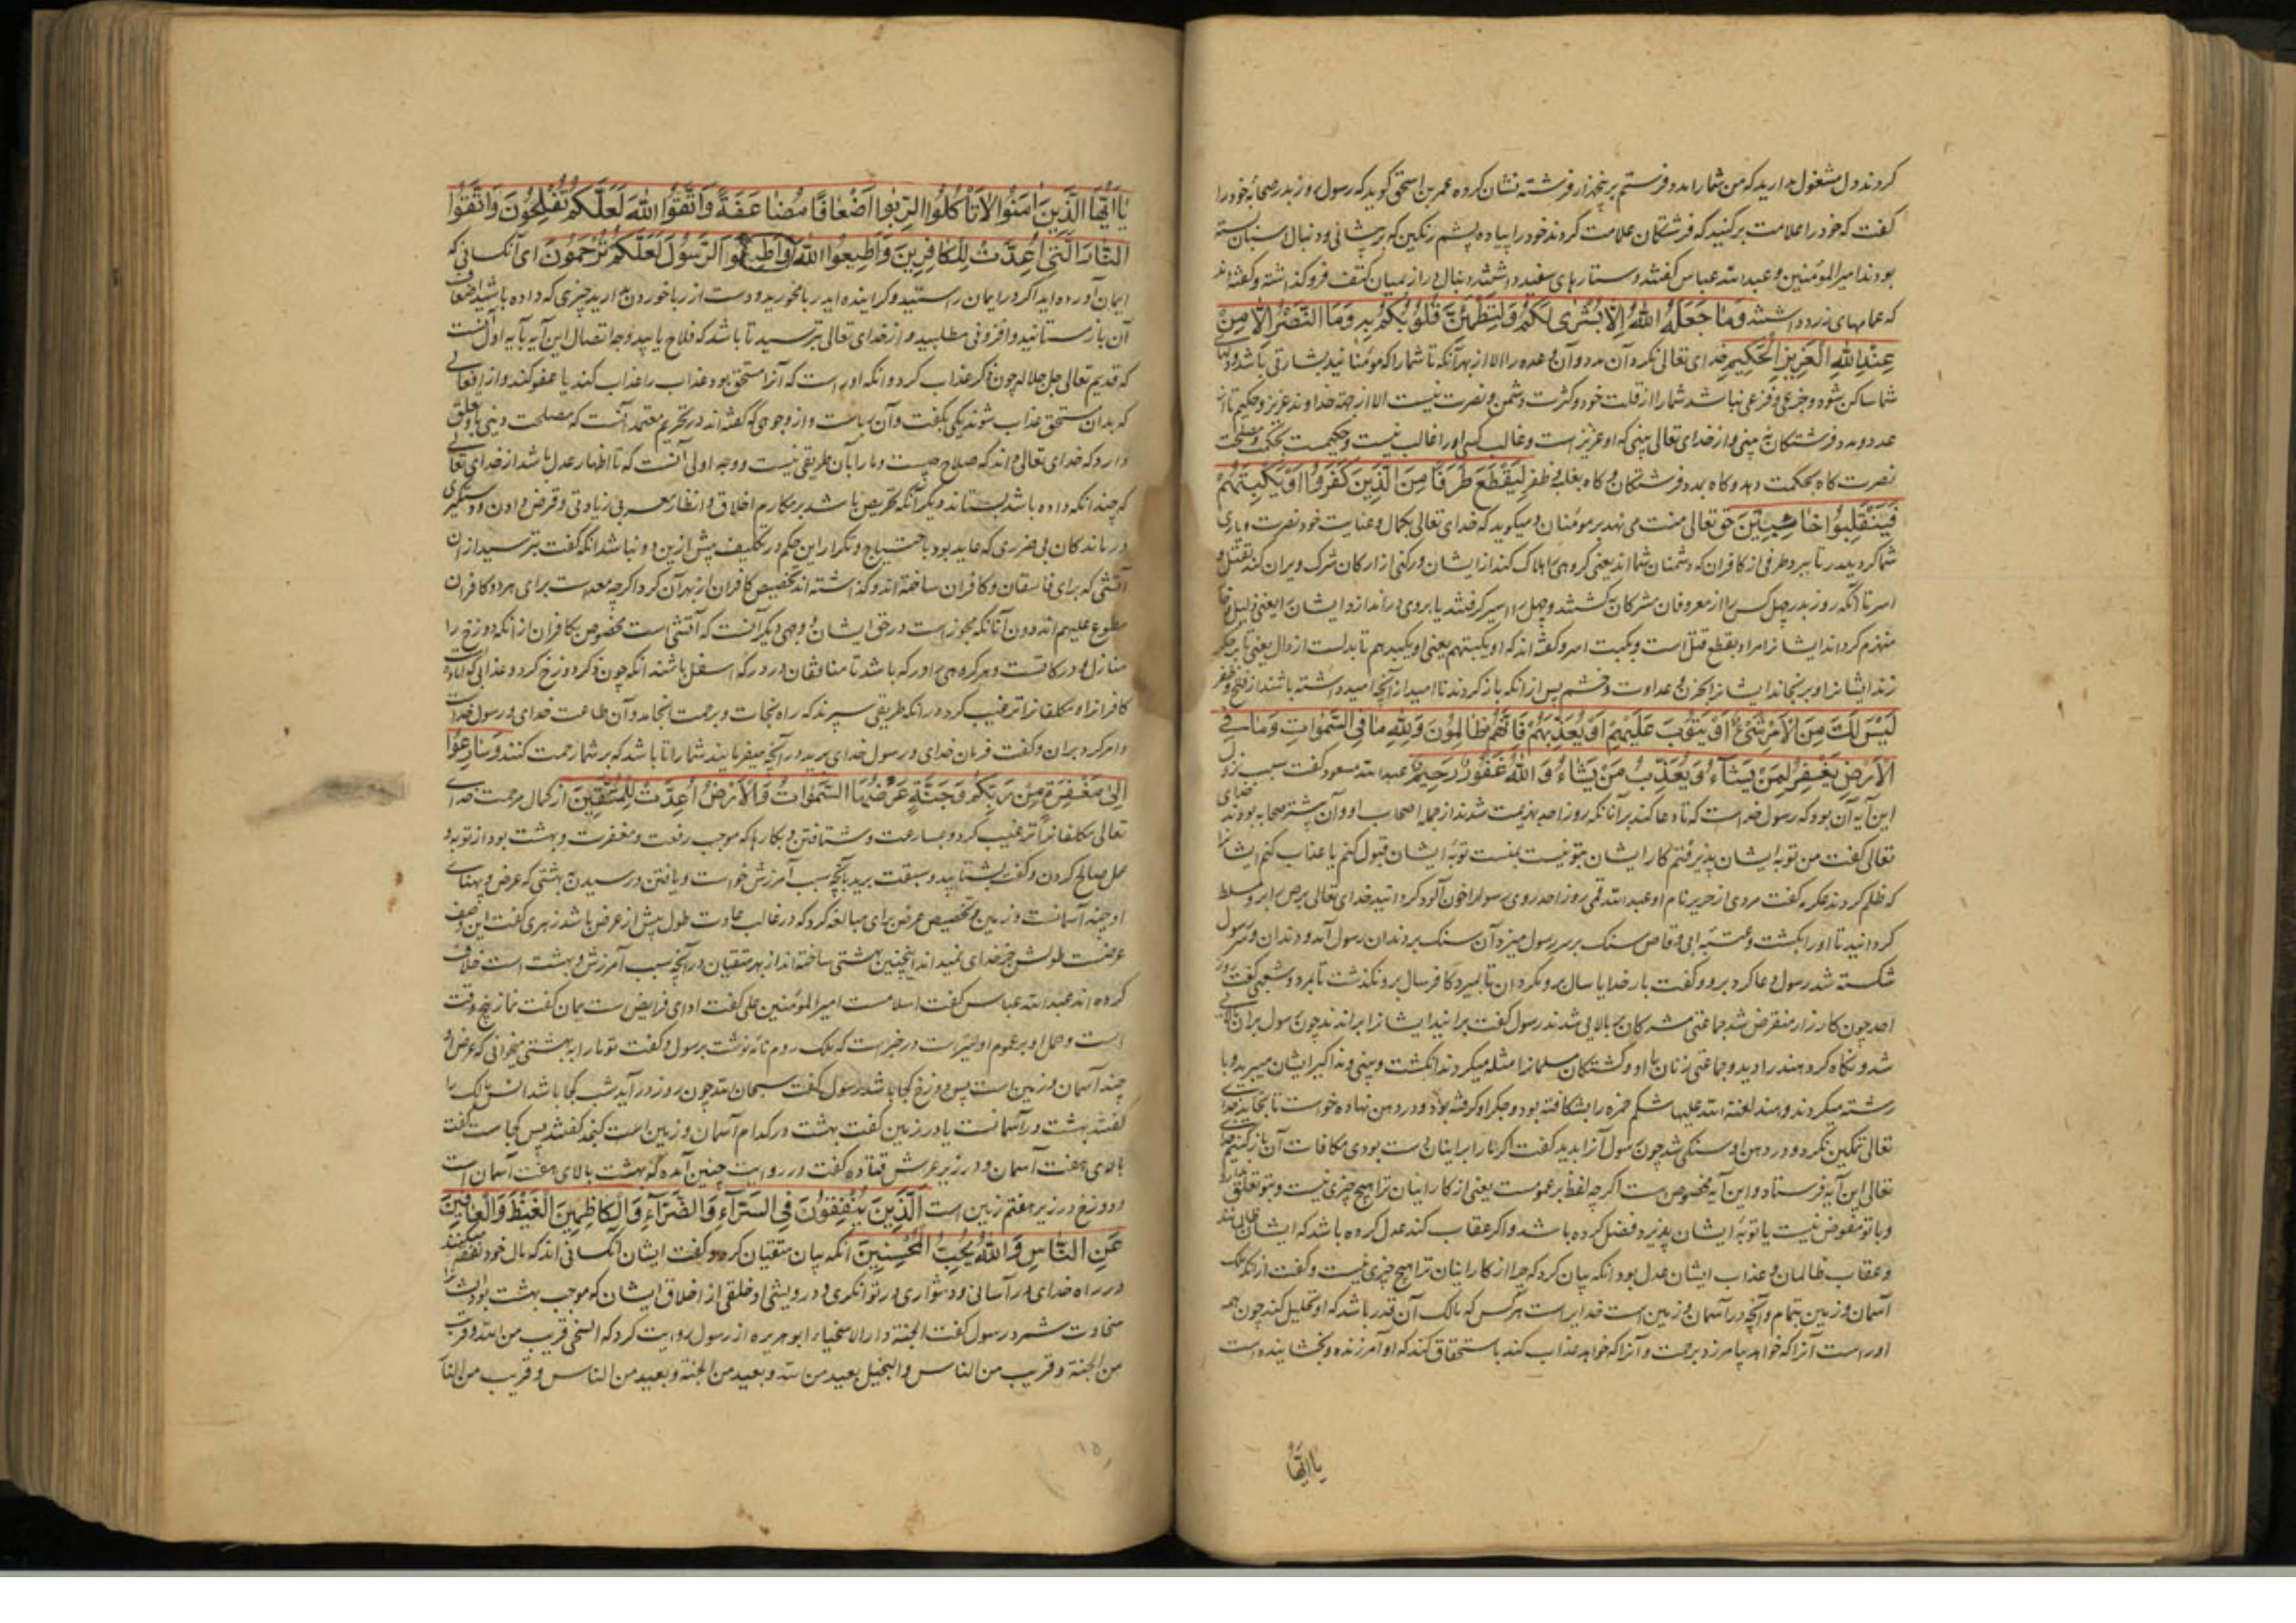 کردند دل مشغول مدارید که من شما را مدد فرستم بر پنجهزار فرشته نشان کرده عمر بن اسحق کوید که رسول روز بدر صحابۀ خود را
کفت که خود را علامت بر کنید که فرشتکان علامت کردند خود را پیاده پشم رنکین که بر پیشانی و دنبال اسبان بسته
بودند امیرالمؤمنین و عبدالله عباس کفتند دستارهای سفید داشتند و دنبال از میان کتف فرو کذاشته و کفته اند
که عمامهای زرد داشتند وَمَا جَعَلَهُ اللهُ اِلَّا بُشْرٰی لَکُمْ وَلِتَطْمَئِنَّ قُلُوبُکُمْ بِهِ وَمَا النَّصْرُ اِلَّا مِنْ
عِنْدِ اللهِ الْعَزِیزِ الْحَکِیمِ خدای تعالی نکرد آن مدد و آن وعده را الا از بهر آنکه تا شما را که مؤمنانید بشارتی باشد و دلهای
شما ساکن شود و جزعی و فزعی نباشد شما را از قلت خود و کثرت دشمن و نصرت نیست الا از جهة خداوند عزیز و حکیم تا از
عدد و مدد فرشتکان نه بینی و از خدای تعالی بینی که او عزیز است و غالب کس او را غالب نیست و حکیمست بحکمت و مصلحت
نصرت کاه بحکمت دهد و کاه بمدد فرشتکان و کاه بغلبه و ظفر لِیَقْطَعَ طَرَفًا مِنَ الَّذِینَ کَفَرُوا اَوْ یَکْبِتَهُمْ
فَیَنْقَلِبُوا خَائِبِینَ حق تعالی منت می نهد بر مؤمنان و میکوید که خدای تعالی بکمال و عنایت خود نصرت و یاری
شما کرد ببدر تا ببرد طرفی از کافران که دشمنان شما اند یعنی کروهی را هلاک کند از ایشان و رکنی از ارکان شرک ویران کند بقتل و
اسر تا آنکه روز بدر چهل کس را از معروفان مشرکان بکشتند و چهل را اسیر کرفتند یا بروی در اندازد ایشان را یعنی ذلیل و
منهزم کرداند ایشانرا مراد بقطع قتل است و بکبت اسر و کفته اند که او یکبتهم یعنی او یکبدهم تا بدلست از دال یعنی تا بر جکر
زند ایشانرا و برنجاند ایشانرا بحزن و عداوت و خشم پس از آنکه باز کردند نا امید از آنچه امید داشته باشند از فتح و ظفر
لَیْسَ لَکَ مِنَ الْاَمْرِ شَیْءٌ اَوْ یَتُوبَ عَلَیْهِمْ اَوْ یُعَذِّبَهُمْ فَاِنَّهُمْ ظَالِمُونَ وَلِلّٰهِ مَا فِی السَّمٰوَاتِ وَمَا فِی
الْاَرْضِ یَغْفِرُ لِمَنْ یَشَاءُ وَیُعَذِّبُ مَنْ یَشَاءُ وَ اللهُ غَفُورٌ رَحِیمٌ عبدالله مسعود کفت سبب نزول
این آیه آن بود که رسول خواست که تا دعا کند بر آنانکه روز احد بهزیمت شدند از جمله اصحاب او و آن بیشتر صحابه بودند خدای
تعالی کفت من توبۀ ایشان پذیرفتم کار ایشان بتو نیست بمنست توبۀ ایشان قبول کنم یا عذاب کنم ایشانرا
که ظلم کردند عکرمه کفت مردی از نام او عبدالله قمی روز احد روی رسول را خون آلود کردانید خدای تعالی بر او مسلط
کردانید تا او را بکشت و عتبه ابی وقاص سنک بر سر رسول میزد آن سنک بر دندان رسول آمد و دندان و سر رسول
شکسته شد رسول دعا کرد برو و کفت بار خدایا سال برو مکردان تا بمیرد کافر سال برو نکذشت تا بمرد و شعبی کفت روز
احد چون کارزار منقرض شد جماعتی مشرکان ببالایی شدند رسول کفت برانید ایشانرا براندند چون رسول بران بالای
شد و نکاه کرد هند را دید و جماعتی زنان با او و کشتکان مسلمانرا مثله میکردند انکشت و بینی و ایشان میبرید و با
رشته میکردند و هند لعنة الله علیها شکم حمزه را بشکافته بود و جکر او کرفته بود و در دهن نهاده خواست تا بخاید خدای
تعالی تمکین نکرد و در دهن او سنکی شد چون رسول آنرا بدید کفت اکر ما را بر اینان دست بودی مکافات آن باز کنیم خدای
تعالی این آیه فرستاد و این آیه مخصوص است اکرچه لفظ بر عمومست یعنی از کار اینان ترا هیچ چیزی نیست و بتو تعلق ندارد
و با تو مفوض نیست یا توبۀ ایشان پذیرد فضل کرده باشد و اکر عقاب کند عدل کرده باشد که ایشان ظالمانند
و عقاب ظالمان و عذاب ایشان عدل بود آنکه بیان کرد که چرا از کار اینان ترا هیچ چیزی نیست و کفت از آنکه ملک
آسمان و زمین بتمام و آنچه در آسمان و زمین است خدایراست هرکس که مالک آن قدر باشد که او تحلیل کند چون همه
او راست آنرا که خواهد بیامرزد برحمت و آنرا که خواهد عذاب کند باستحقاق کند که او آمرزنده و بخشاینده است
یَا اَیُّهَا
یَا اَیُّهَا الَّذِینَ اٰمَنُوا لَا تَاْکُلُوا الرِّبٰوا اَضْعَافًا مُضَاعَفَةً وَاتَّقُوا اللهَ لَعَلَّکُمْ تُفْلِحُونَ وَاتَّقُوا
النَّارَ الَّتِی اُعِدَّتْ لِلْکَافِرِینَ وَاَطِیعُوا اللهَ وَاَطِیعُوا الرَّسُولَ لَعَلَّکُمْ تُرْحَمُونَ ای آنکسانی که
ایمان آورده اید اکر در ایمان راستید و کراینده اید ربا مخورید و دست از ربا خوردن بدارید چیزی که داده باشید اضعاف
آن باز مستانید و افزونی مطلبید و از خدای تعالی بترسید تا باشد که فلاح یابید وجه اتصال این آیه بآیه اول آنست
که قدیم تعالی جل جلاله چون ذکر عذاب کرد و آنکه او راست که آنرا مستحق بود عذاب را عذاب کند یا عفو کند و از افعالی
که بدان مستحق عذاب شوند یکی بکفت و آن رباست و از وجوهی که کفته اند در تحریم معتمد آنست که مصلحت دینی باو تعلق
دارد که خدای تعالی داند که صلاح چیست و ما را بآن طریقی نیست و وجه اولی آنست که تا اظهار عدل باشد از خدای تعالی
که چندانکه داده باشد بستاند دیکر آنکه تحریص باشد بر مکارم اخلاق و انظار معسر بی زیادتی و قرض دادن و دستکیری
درماندکان بی ضرری که عاید بود باحتیاج و تکرار این حکم در تکلیف بیش ازین نباشد آنکه کفت بترسید از آن
آتشی که برای فاسقان و کافران ساخته اند و کذاشته اند تخصیص کافران از بهر آن کرد اکرچه معد است برای هر دو کافران
مقطوع علیهم اند دون آنانکه مجوز است در حق ایشان و وجهی دیکر آنست که آتشی است مخصوص بکافران از آنکه دوزخ را
منازل و درکاتست و هر کروهی را درکه باشد تا منافقان در درکۀ اسفل باشند آنکه چون ذکر دوزخ کرد و عذابی که آماده
کافرانرا و مکلفانرا ترغیب کرد در آنکه طریقی سپرند که راه نجات و برحمت انجامد و آن طاعت خدای و رسول خداست
و امر کرد بران و کفت فرمان خدای و رسول خدای برید در آنچه میفرمایند شما را تا باشد که بر شما رحمت کنند وَسَارِعُوا
اِلٰی مَغْفِرَةٍ مِنْ رَبِّکُمْ وَجَنَّةٍ عَرْضُهَا السَّمٰوَاتُ وَالْاَرْضُ اُعِدَّتْ لِلْمُتَّقِینَ از کمال مرحمت خدای
تعالی مکلفانرا ترغیب کرد و بمسارعت و شتافتن بکارها که موجب رفعت و مغفرت و بهشت بود از توبه و
عمل صالح کردن و کفت بشتابید و سبقت برید بآنچه سبب آمرزش خواست و یافتن و رسیدن بهشتی که عرض و پهنای
او چند آسمانست و زمین و تخصیص عرض برای مبالغه کرد که در غالب عادت طول بیش از عرض باشد زهری کفت این وصف
عرضست طولش جز خدای نمیداند اینچنین بهشتی ساخته اند از بهر متقیان در آنچه سبب آمرزش و بهشت است خلاف
کرده اند عبدالله عباس کفت اسلامست امیرالمؤمنین علی کفت ادای فرایض است یمان کفت نماز پنج وقت
است و حمل او بر عموم اولیتر است در خبر است که ملک روم نامه نوشت برسول و کفت تو ما را به بهشتی میخوانی که عرض او
چند آسمان و زمین است پس دوزخ کجا باشد رسول کفت سبحان الله چون روز در آید شب کجا باشد انس مالک را
کفتند بهشت در آسمانست یا در زمین کفت بهشت در کدام آسمان و زمین است کنجد کفتند پس کجاست کفت
بالای هفت آسمان و در زیر عرش قتاده کفت در روایت چنین آمده که بهشت بالای هفت آسمان است
و دوزخ در زیر هفتم زمین است اَلَّذِینَ یُنْفِقُونَ فِی السَّرَّاءِ وَالضَّرَّاءِ وَالْکَاظِمِینَ الْغَیْظَ وَالْعَافِینَ
عَنِ النَّاسِ وَاللهُ یُحِبُّ الْمُحْسِنِینَ آنکه بیان متقیان کرد و کفت ایشان آنکسانی اند که مال خود نفقه میکنند
در راه خدای در آسانی و دشواری و توانکری و درویشی و خلقی از اخلاق ایشان که موجب بهشت بود ایشانرا
سخاوت شمرد رسول کفت الجنة دار الاسخیاء ابو هریره از رسول روایت کرد که السخی قریب من الله و قریب
من الجنة و قریب من الناس و البخیل بعید من الله و بعید من الجنة و بعید من الناس و قریب من النار